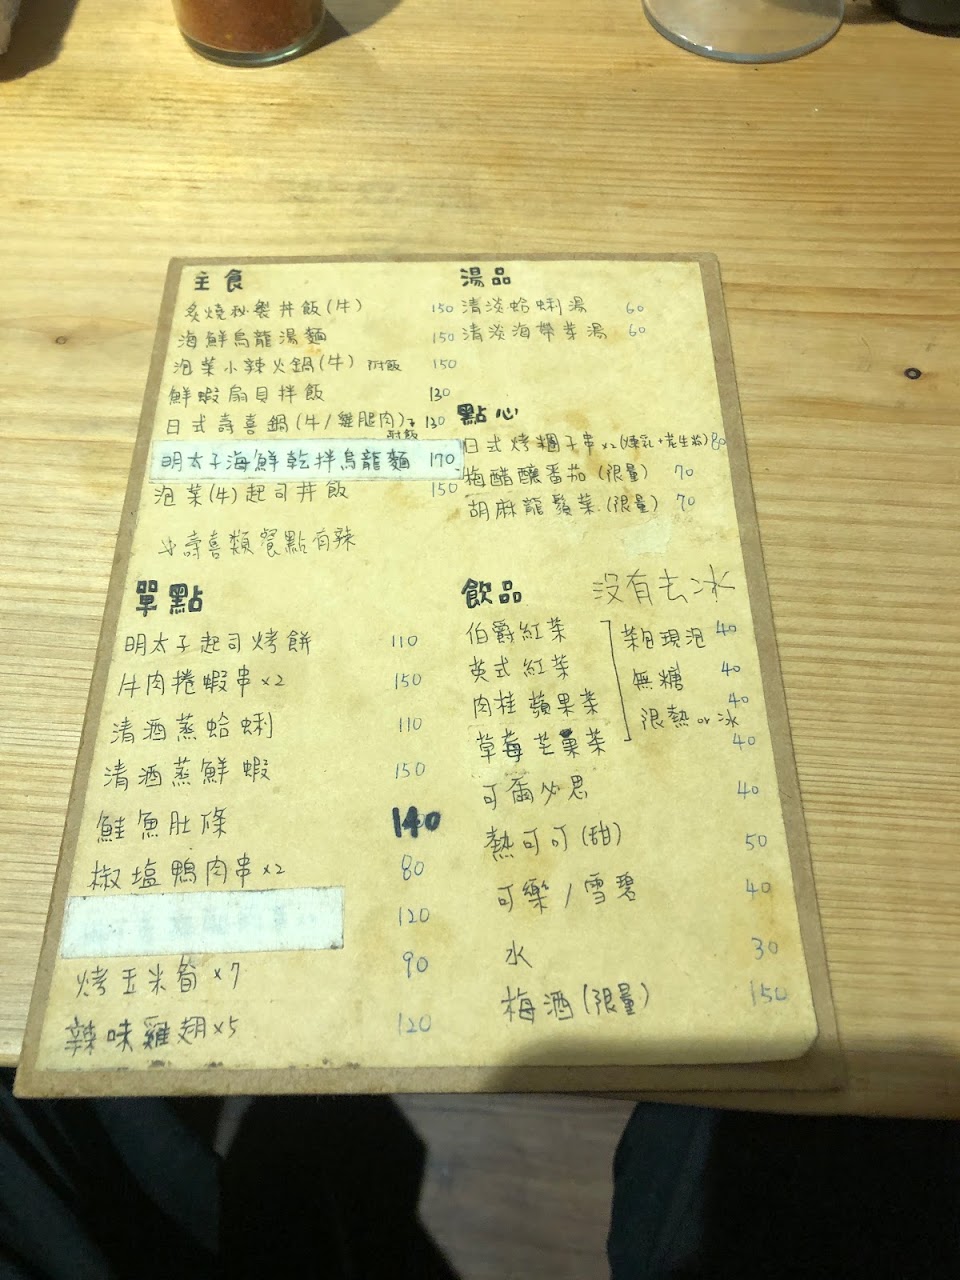 主食
炙燒秘製丼飯(牛) 150
海鮮烏龍湯麵 150
泡菜小辣火鍋(牛) 附飯 150
鮮蝦扇貝拌飯 130
日式壽喜鍋(牛/雞腿肉) 附飯 130
明太子海鮮乾拌烏龍麵 170
泡菜(牛)起司丼飯 150
壽喜類餐點有辣
湯品
清淡蛤蜊湯 60
清淡海帶芽湯 60
點心
日式烤糰子串x2(煉乳+花生粉) 80
梅醋釀番茄(限量) 70
胡麻龍鬚菜(限量) 70
單點
明太子起司烤餅 110
牛肉捲蝦串x2 150
清酒蒸蛤蜊 110
清酒蒸鮮蝦 150
鮭魚肚條 140
椒塩鴨肉串x2 80
120
烤玉米筍x7 90
辣味雞翅x5 120
飲品 沒有去冰
伯爵紅茶 40
英式紅茶 40
肉桂蘋果茶 40
草莓芒菓茶 40
茶包現泡
無糖
限熱or冰
可爾必思 40
熱可可(甜) 50
可樂/雪碧 40
水 30
梅酒(限量) 150